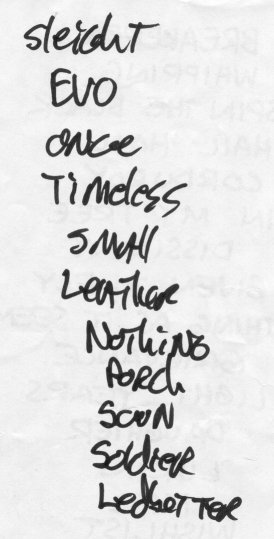 sleight
EVO
ONCe
Timeless
SMAll
LeATheR
NOThiNG
PORCh
SOON
SoldieR
LedbeTTeR